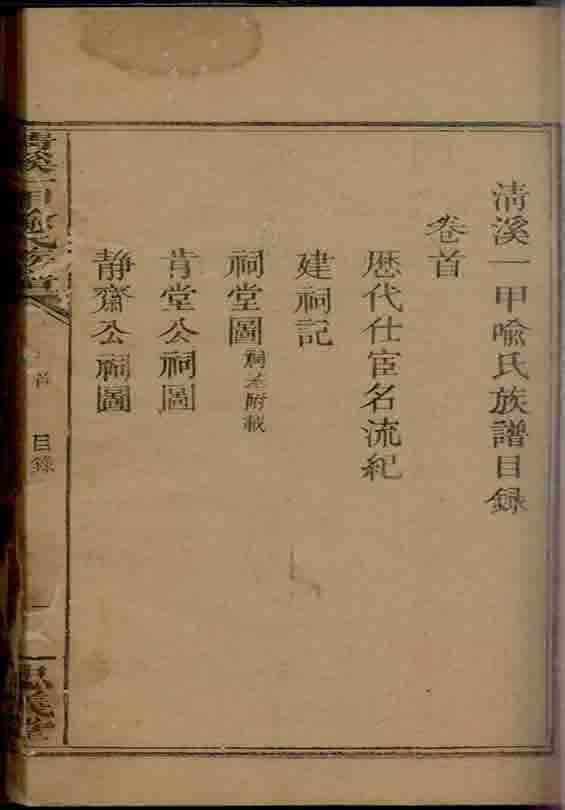 清溪一甲喻氏族譜目録
卷首
歴代仕宦名流紀
建祠記
祠堂圖祠產附載
肯堂公祠圖
靜齋公祠圖
清溪一甲喻氏族譜
卷首
目錄
一
忠義堂